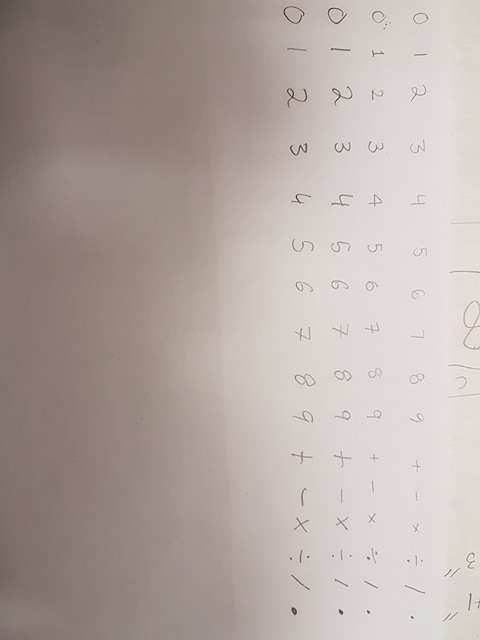 0 1 2 3 4 5 6 7 8 9 + - × ÷ / .
0 1 2 3 4 5 6 7 8 9 + - × ÷ / .
0 1 2 3 4 5 6 7 8 9 + - × ÷ / .
0 1 2 3 4 5 6 7 8 9 + - × ÷ / .